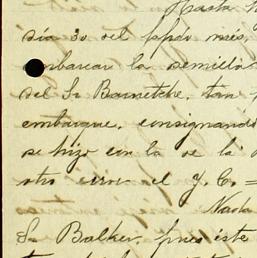 Hasta
día 30 del ppdo mes,
embarcar la semilla
del Sr Barnetche, tan
embarque, consignand
se hizo con la de la
otro
el y. Co. =
Nada
Sr Balker, pues éste